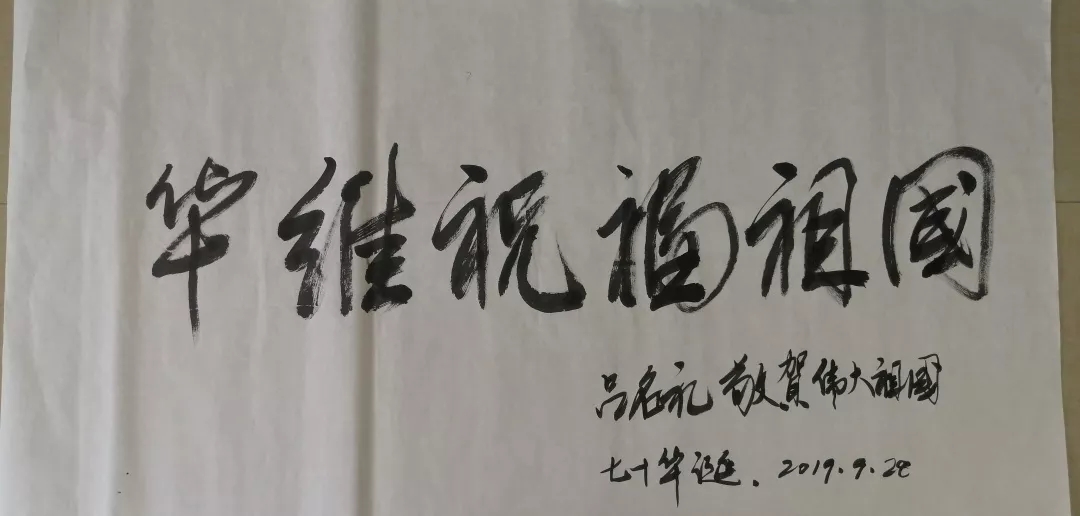 华维祝福祖國
吕名礼敬賀伟大祖國
七十华诞.2019.9.28